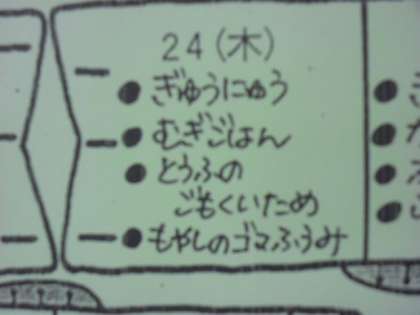 24(木)
●ぎゅうにゅう
●むぎごはん
●とうふの
ごもくいため
●もやしのゴマふうみ